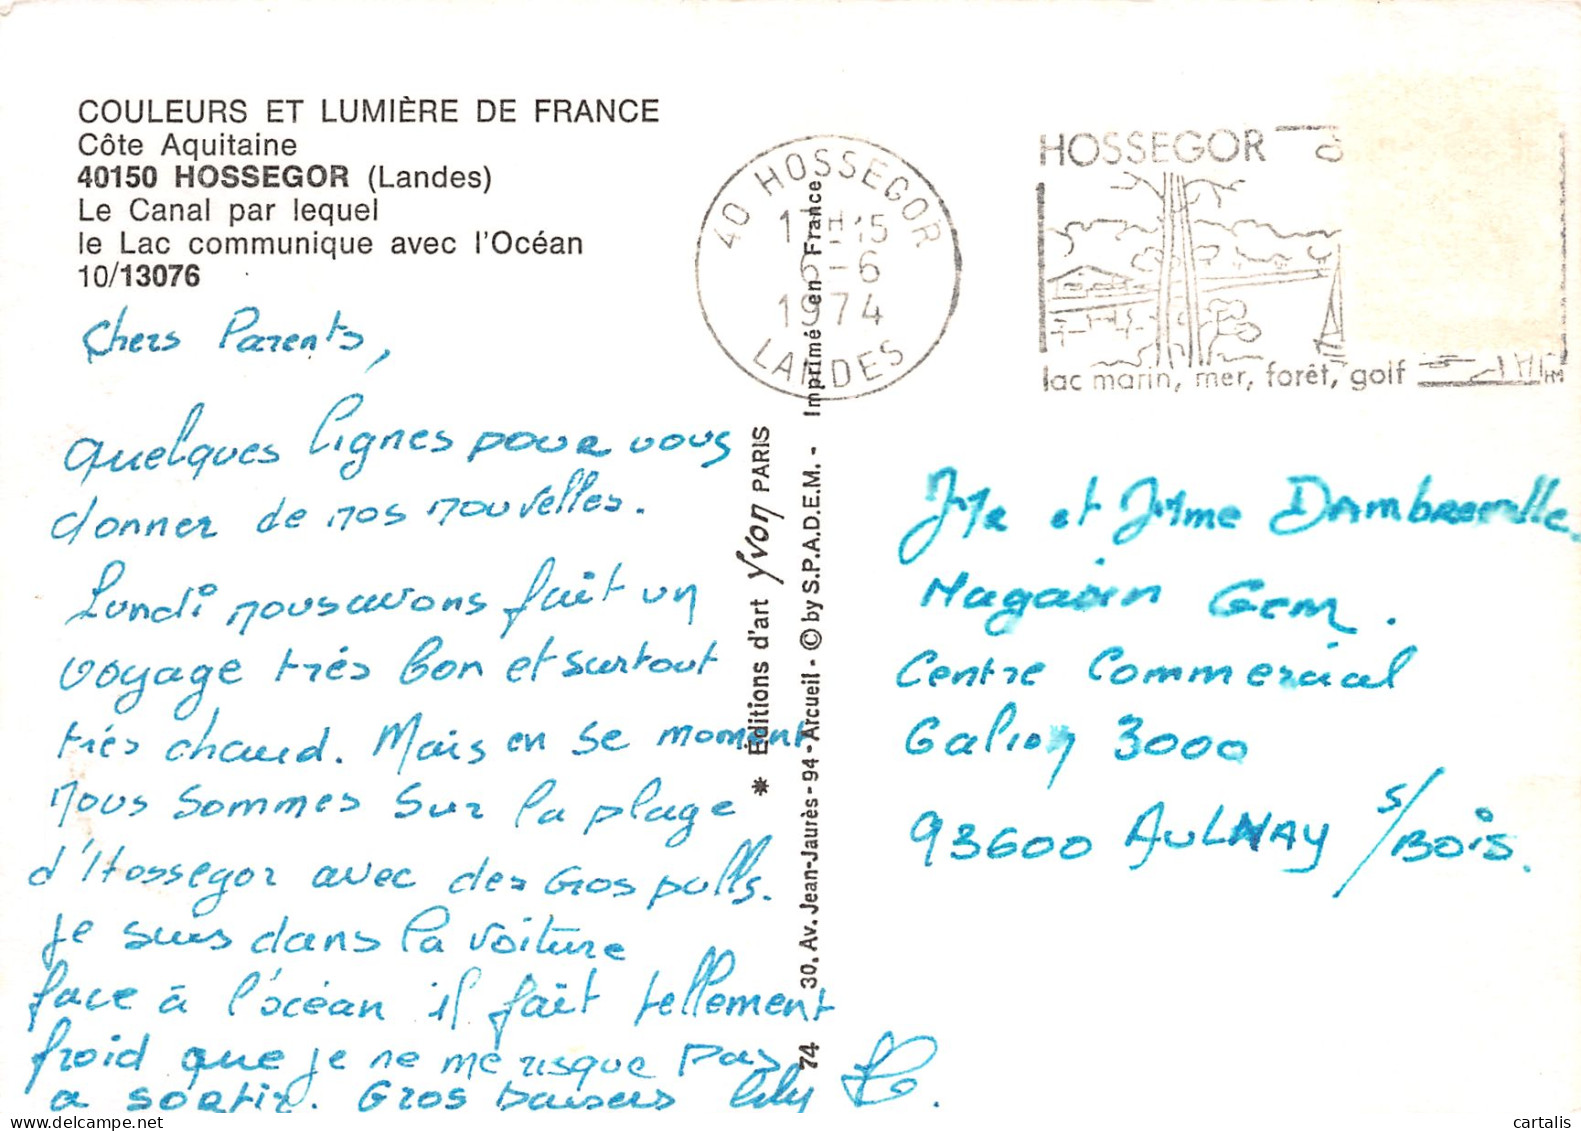 COULEURS ET LUMIÈRE DE FRANCE
Côte Aquitaine
40150 HOSSEGOR (Landes)
Le Canal par lequel
le Lac communique avec l'Océan
10/13076
Chers Parents,
Quelques lignes pour vous
donner de nos nouvelles.
Lundi nous avons fait un
voyage très bon et surtout
très chaud. Mais en se moment
nous sommes sur la plage
d'Hossegor avec des Gros pulls.
Je suis dans la voiture
face à l'océan il fait tellement
froid que je ne me risque pas
a sortir. Gros Baisers Lily
* Editions d'art Yvon PARIS
74 30, Av. Jean-Jaurès - 94 - Arcueil - © by S.P.A.D.E.M. - Imprimé en France
40 HOSSEGOR
15
-6
1974
LANDES
HOSSEGOR
lac marin, mer, forêt, golf
HM
Mr et Mme
Magasin Gem.
Centre Commercial
Galion 3000
93600 AULNAY s/BOIS.
cartalis
delcampe.net